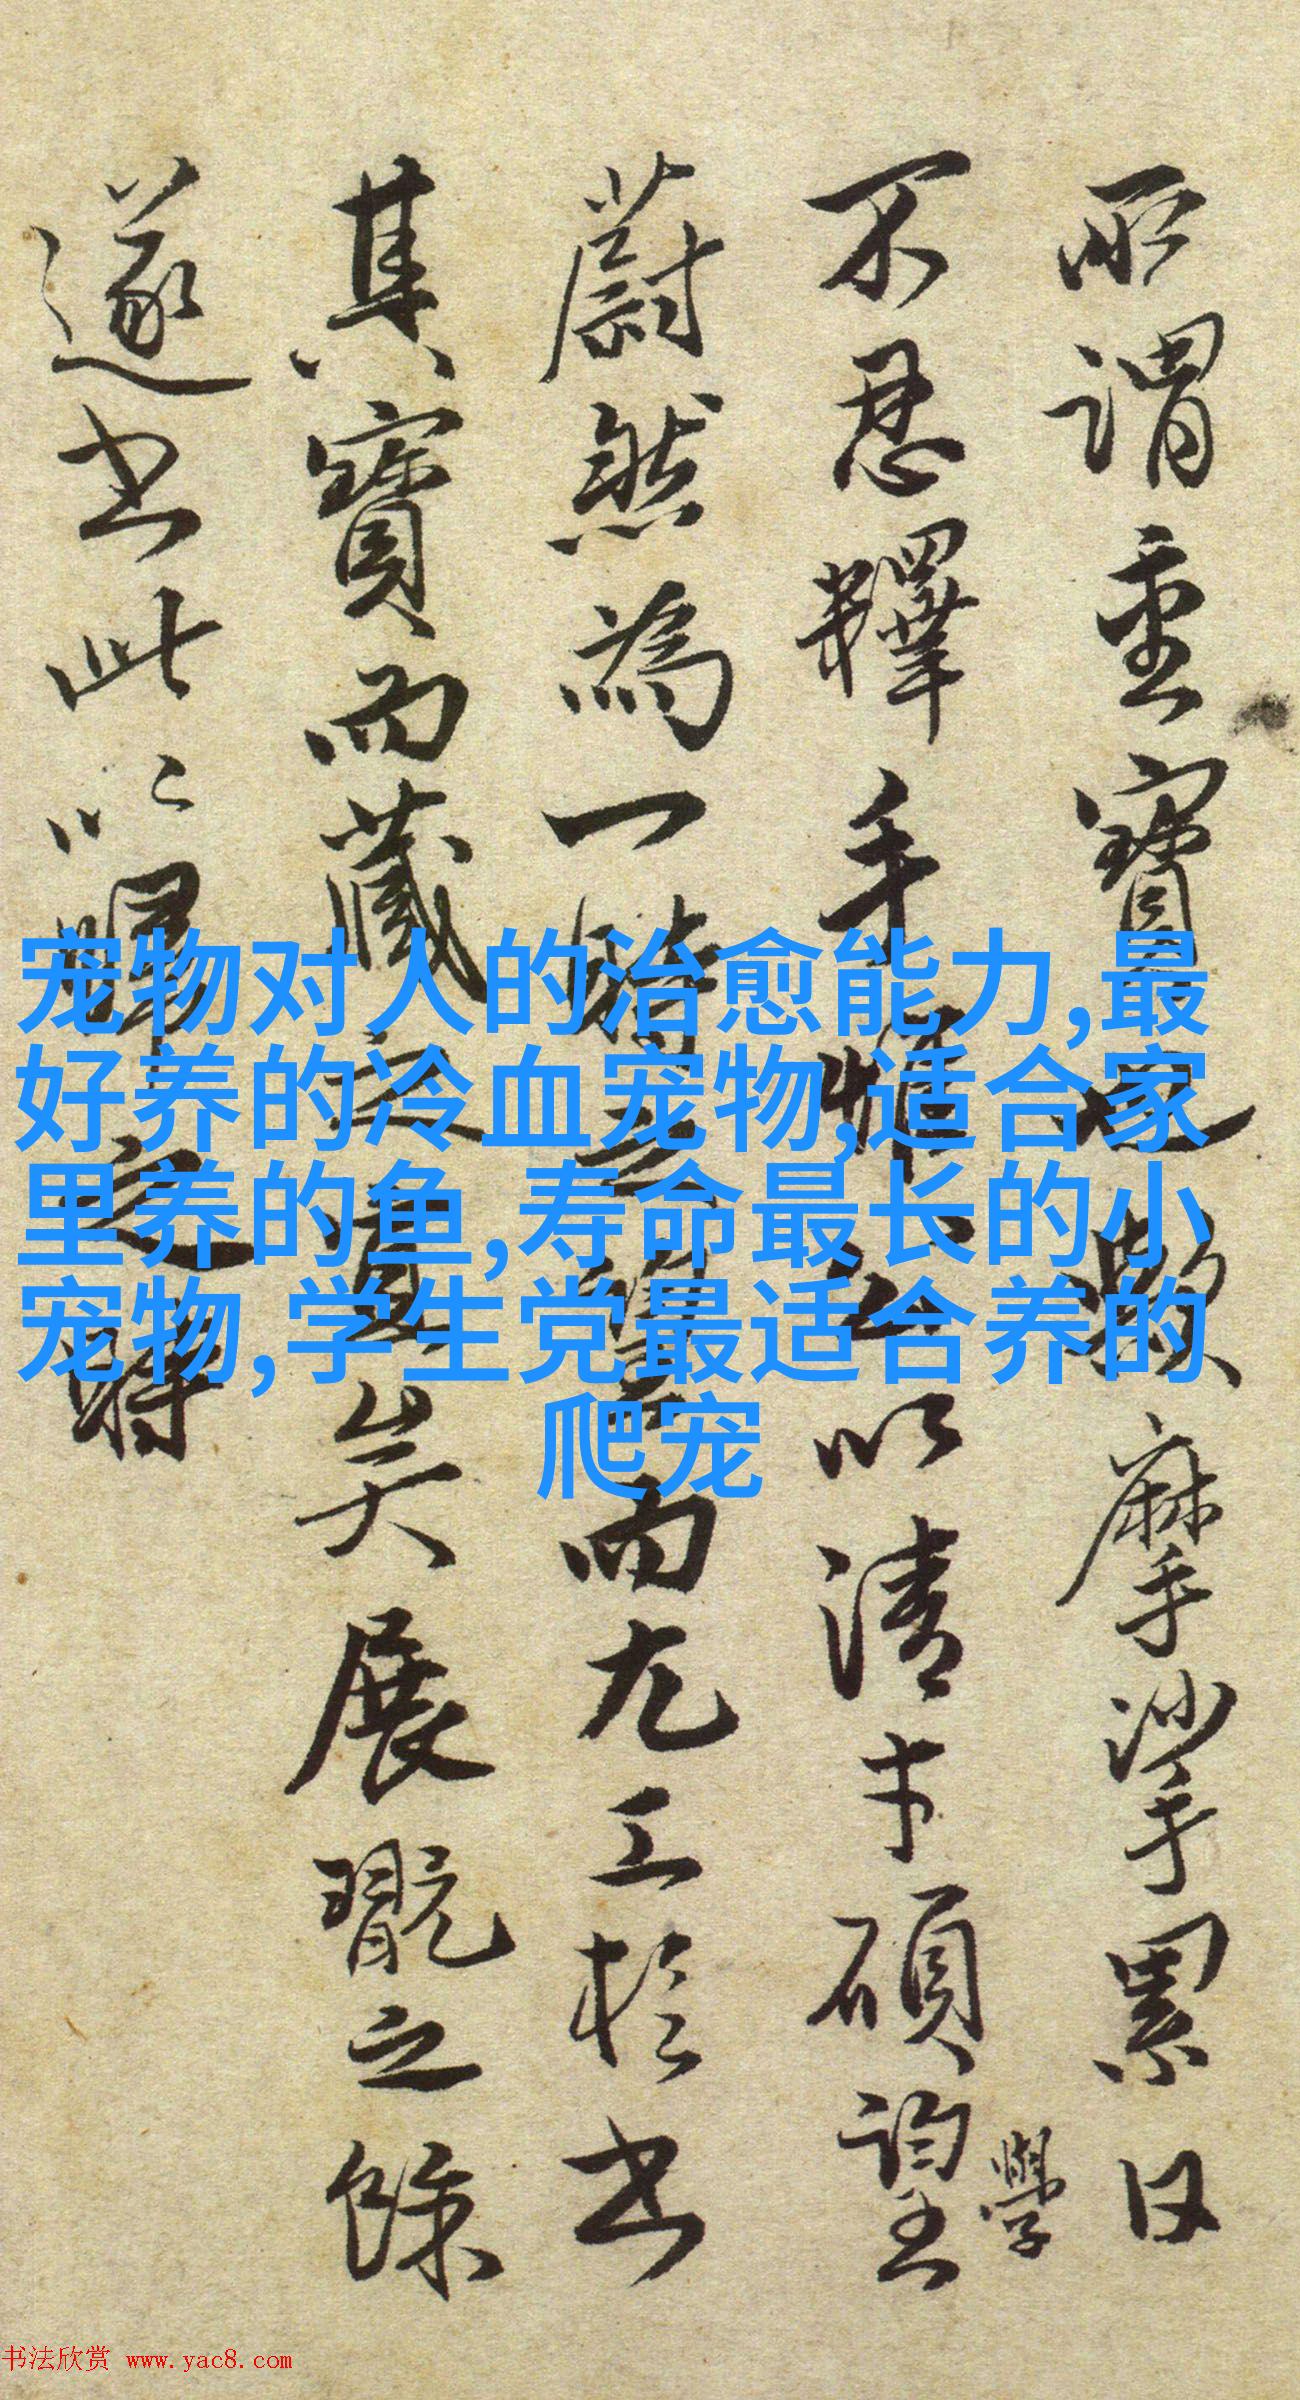 所谓重寶也頫摩挲累日
不忍釋手惟以清才碩望學
蔚然為一時之望而尤工於書
其寶而藏之宜矣展翫之餘
遂書此以歸之時
宠物对人的治愈能力,最
好养的冷血宠物,适合家
里养的鱼,寿命最长的小
宠物,学生党最适合养的
爬宠
书法欣赏 www.yac8.com